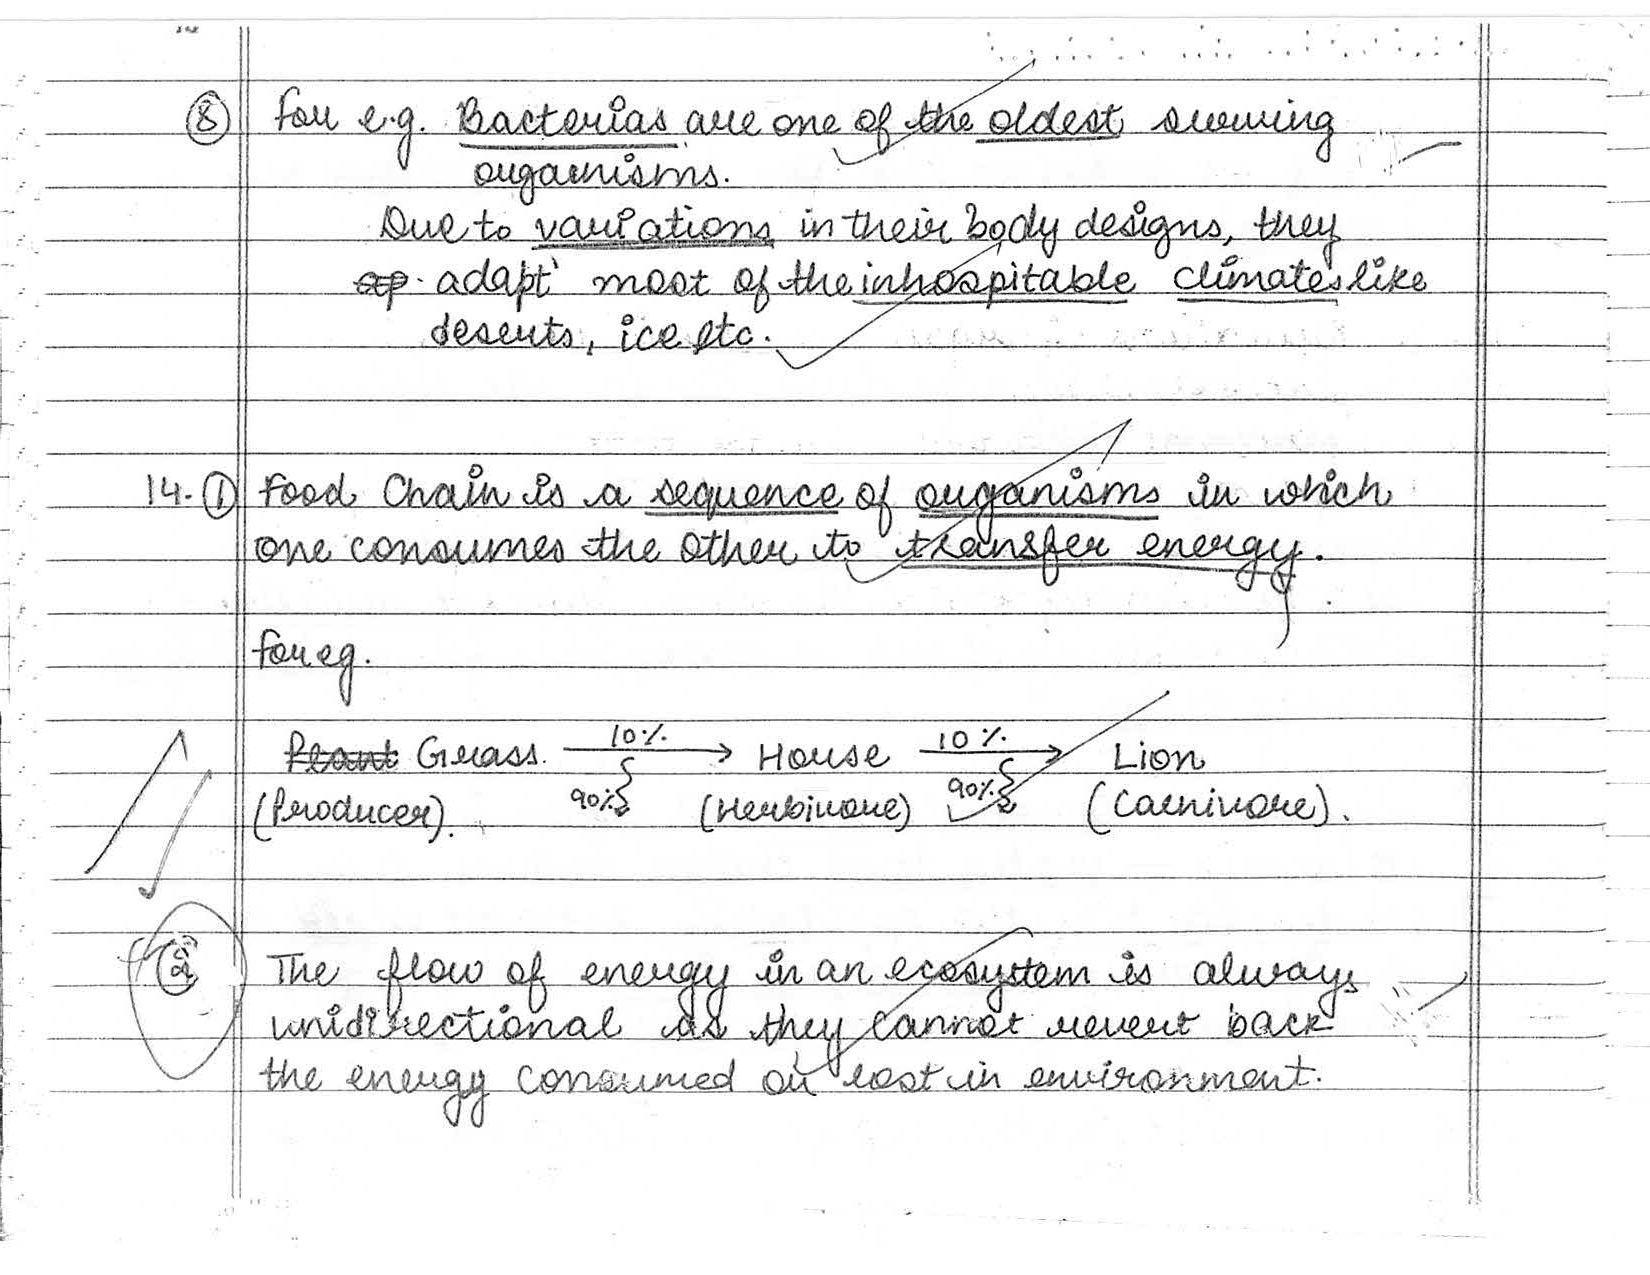 ⑧ For e.g. Bacterias are one of the oldest surviving
organisms.
Due to variations in their body designs, they
adapt most of the inhospitable climates like
deserts, ice etc.
14. ① Food Chain is a sequence of organisms in which
one consumes the other to transfer energy.
For eg.
Plant Grass 10% → Horse 10% → Lion
90% 90%
(Producer). (Herbivore) (Carnivore).
② The flow of energy in an ecosystem is always
unidirectional as they cannot revert back
the energy consumed or lost in environment.